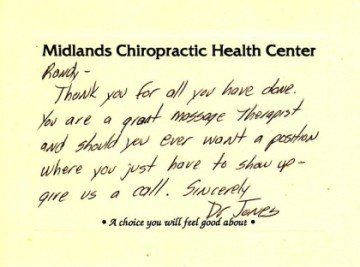 Midlands Chiropractic Health Center
Randy -
Thank you for all you have done.
You are a great massage Therapist
and should you ever want a position
where you just have to show up -
give us a call. Sincerely
Dr Jones
• A choice you will feel good about •